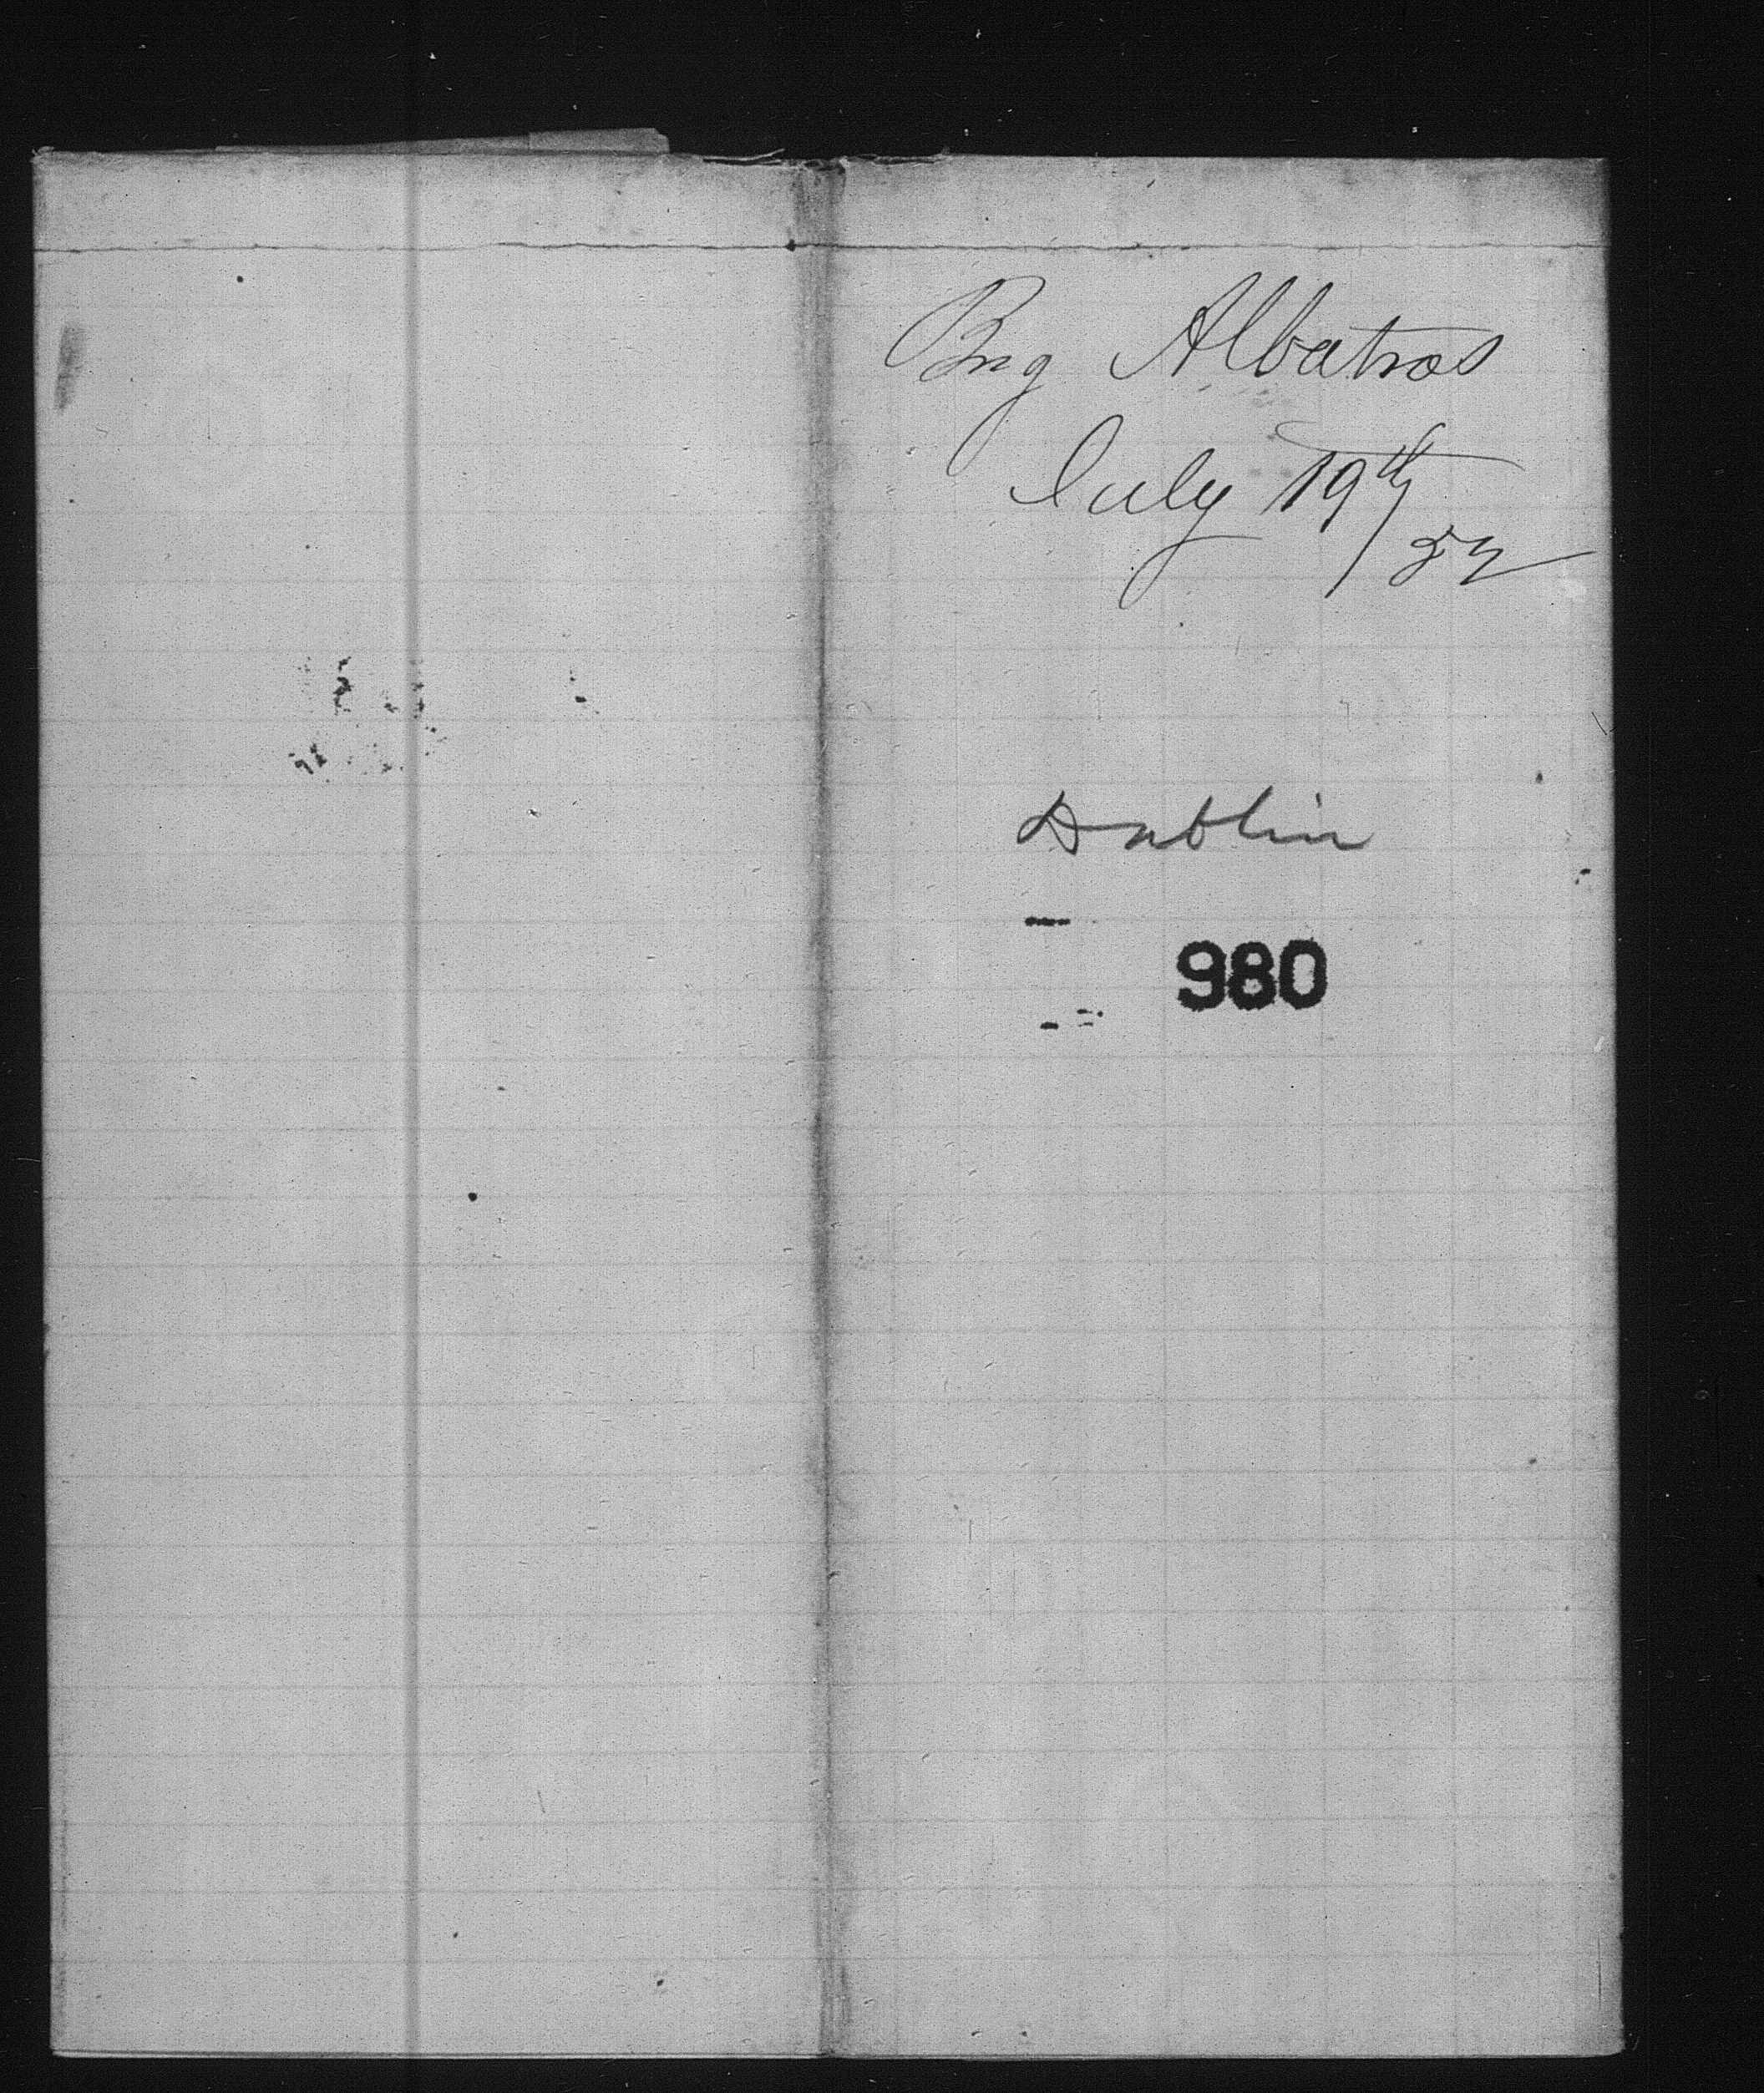 Brig Albatros
July 19th/52
Dublin
980